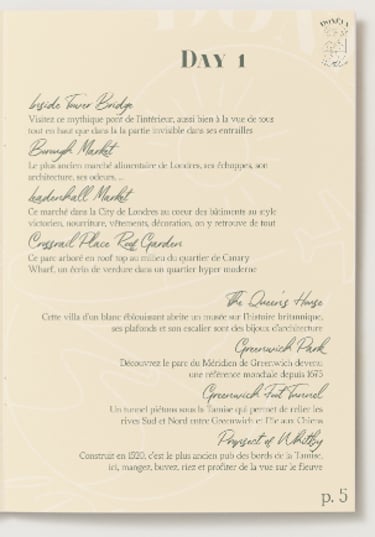 DONEZA
DAY 1
Inside Tower Bridge
Visitez ce mythique pont de l'intérieur, aussi bien à la vue de tous
tout en haut que dans la la partie invisible dans ses entrailles
Borough Market
Le plus ancien marché alimentaire de Londres, ses échoppes, son
architecture, ses odeurs, ...
Leadenhall Market
Ce marché dans la City de Londres au coeur des bâtiments au style
victorien, nourriture, vêtements, décoration, on y retrouve de tout
Crossrail Place Roof Garden
Ce parc arboré en roof top au milieu du quartier de Canary
Wharf, un écrin de verdure dans un quartier hyper moderne
The Queen's House
Cette villa d'un blanc éblouissant abrite un musée sur l'histoire britannique,
ses plafonds et son escalier sont des bijoux d'architecture
Greenwich Park
Découvrez le parc du Méridien de Greenwich devenu
une référence mondiale depuis 1675
Greenwich Foot Tunnel
Un tunnel piétons sous la Tamise qui permet de relier les
rives Sud et Nord entre Greenwich et l'Ile aux Chiens
Prospect of Whitby
Construit en 1520, c'est le plus ancien pub des bords de la Tamise,
ici, mangez, buvez, riez et profiter de la vue sur le fleuve
p. 5